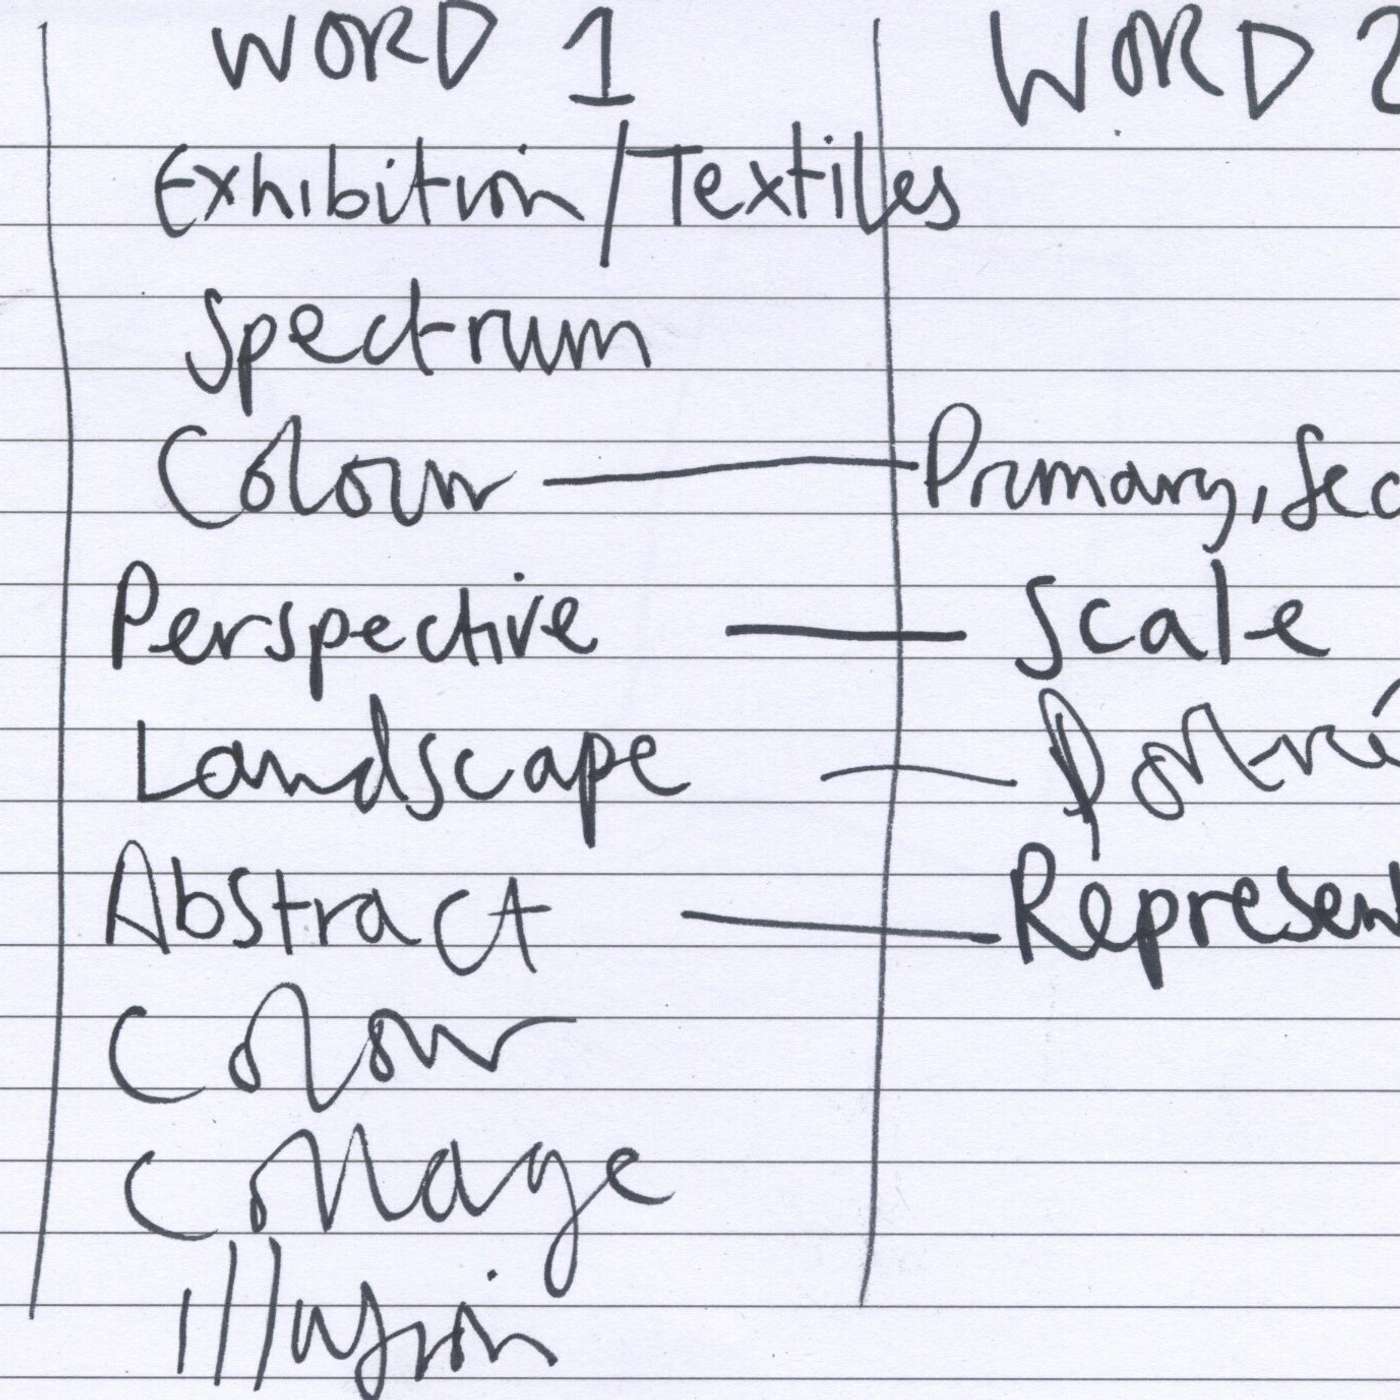 WORD 1 WORD 2
Exhibition/Textiles
Spectrum
Colour — Primary, Sec
Perspective — Scale
Landscape — Portrai
Abstract — Represent
Colour
Collage
Illusion